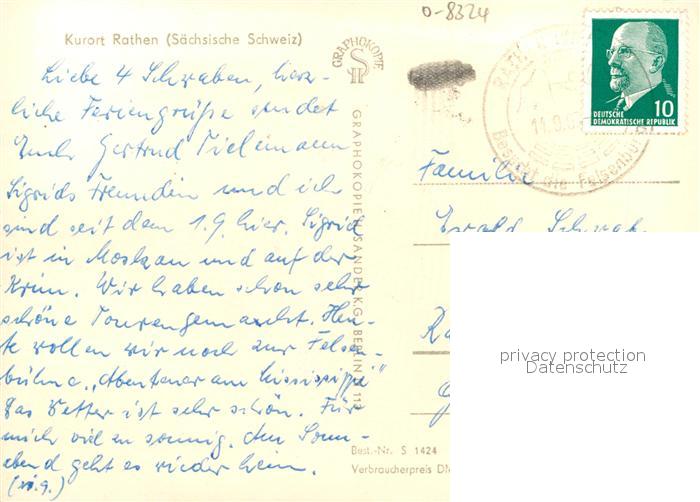 o-8324
Kurort Rathen (Sächsische Schweiz)
GRAPHOKOPIE
Liebe 4 Schwaben, herz-
liche Feriengrüße sendet
Euch Gertrud Tielemann
Sigrids Freundin und ich
sind seit dem 1.9. hier. Sigrid
ist in Moskau und auf der
Krim. Wir haben schon sehr
schöne Touren gemacht. Heu-
te wollen wir noch zur Felsen-
bühne „Abenteuer am Mississippi"
Das Wetter ist sehr schön. Für
mich viel zu sonnig. Am Sonn-
abend geht es wieder heim.
GRAPHOKOPIE H. SANDER K.G. BERLIN
Best.-Nr. S 1424
Verbraucherpreis DM
11.9.
Besucht die Felsenbühne
DEUTSCHE
DEMOKRATISCHE REPUBLIK
10
Familie
Ewald Schwab
privacy protection
Datenschutz